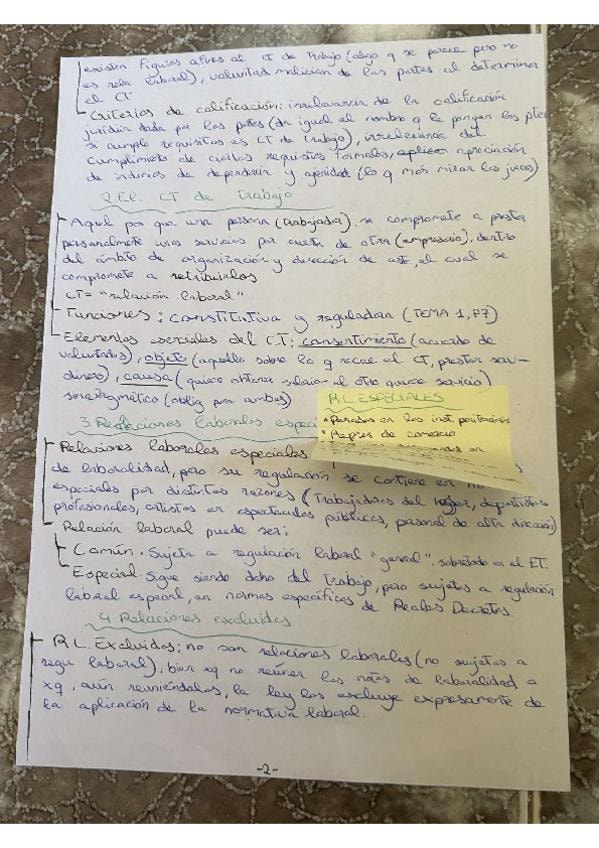 existen figuras afines al CT de Trabajo (algo q se parece pero no
es rela laboral), voluntad de las partes al determinar
el CT
Criterios de calificación: irrelevancia de la calificación
jurídica dada por las partes (da igual el nombre q le pongan las
si cumple requisitos es CT de trabajo), irrelevancia del
cumplimiento de ciertos requisitos formales, apreciación
de indicios de dependencia y ajenidad (lo q más miran los jueces)
2. El CT de Trabajo
Aquel por que una persona (trabajador) se compromete a prestar
personalmente unos servicios por cuenta de otra (empresario), dentro
del ámbito de organización y dirección de este, el cual se
compromete a retribuirlos
CT = "relación laboral"
Funciones: constitutiva y reguladora (TEMA 1, P7)
Elementos esenciales del C.T: consentimiento (acuerdo de
voluntades), objeto (aquello sobre lo q recae el CT, prestar serv-
dinero), causa (quiere obtener salario el otro quiere servicio)
sinalagmático (oblig para ambas)
R.L. ESPECIALES
• Penados en las inst. penitenciarias
• Repres de comercio
3. Relaciones laborales especi
Relaciones laborales especiales
de laboralidad, pero su regulación se contiene en
especiales por distintas razones (Trabajadores del hogar, deportistas
profesionales, artistas en espectáculos públicos, personal de alta dirección)
Relación laboral puede ser:
Común. Sujeta a regulación laboral "general", sobretodo en el ET.
Especial. Sigue siendo dcho del Trabajo, pero sujetas a regulación
laboral especial, en normas específicas de Reales Decretos.
4. Relaciones excluidas
R L. Excluidas; no son relaciones laborales (no sujetas a
regu laboral), bien xq no reúnen las notas de laboralidad o
xq, aún reuniéndolas, la ley las excluye expresamente de
la aplicación de la normativa laboral.
-2-